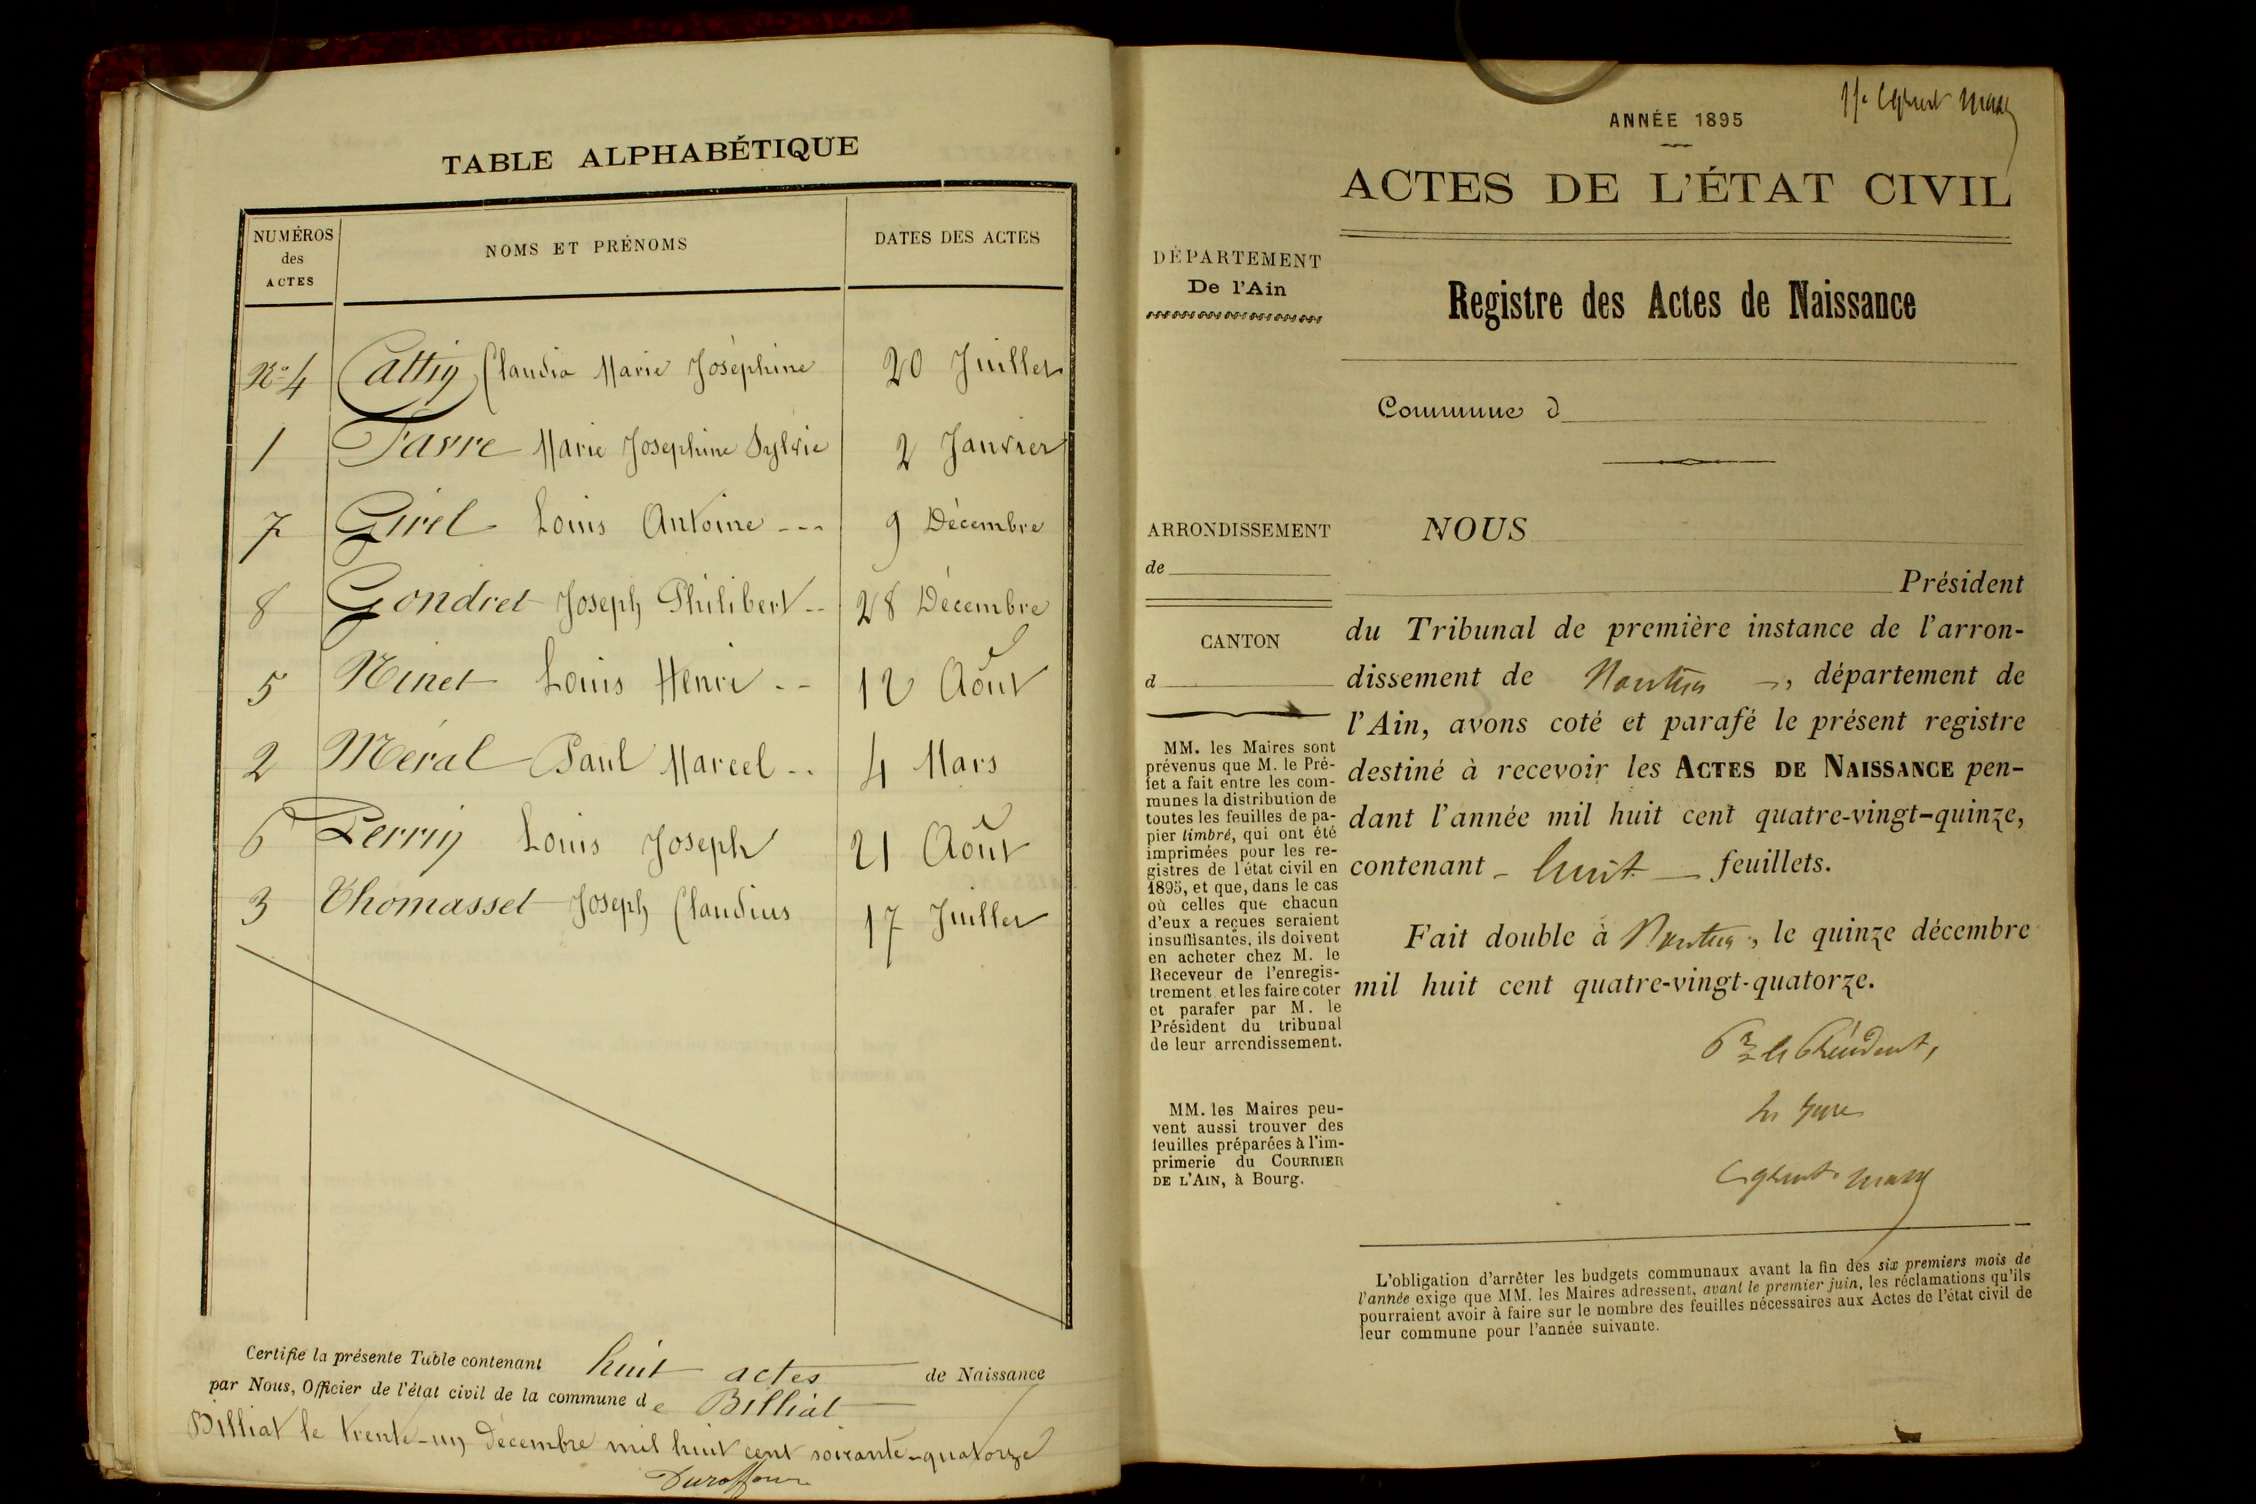 TABLE ALPHABÉTIQUE
NUMÉROS des ACTES
NOMS ET PRÉNOMS
DATES DES ACTES
No 4 Cattin Claudia Marie Joséphine 20 Juillet
1 Favre Marie Josephine Sylvie 2 Janvier
7 Girel Louis Antoine --- 9 Décembre
8 Gondret Joseph Philibert -- 28 Décembre
5 Ninet Louis Henri -- 12 Août
2 Méral Paul Marcel -- 4 Mars
6 Perrin Louis Joseph 21 Août
3 Thomasset Joseph Claudius 17 Juillet
Certifie la présente Table contenant huit actes de Naissance
par Nous, Officier de l'état civil de la commune de Billiat
Billiat le trente-un décembre mil huit cent soixante-quatorze
ANNÉE 1895
ACTES DE L'ÉTAT CIVIL
DÉPARTEMENT
De l'Ain
Registre des Actes de Naissance
Commune d
ARRONDISSEMENT
de
CANTON
d
MM. les Maires sont
prévenus que M. le Pré-
fet a fait entre les com-
munes la distribution de
toutes les feuilles de pa-
pier timbré, qui ont été
imprimées pour les re-
gistres de l'état civil en
1895, et que, dans le cas
où celles que chacun
d'eux a reçues seraient
insuffisantes, ils doivent
en acheter chez M. le
Receveur de l'enregis-
trement et les faire coter
et parafer par M. le
Président du tribunal
de leur arrondissement.
MM. les Maires peu-
vent aussi trouver des
feuilles préparées à l'im-
primerie du COURRIER
DE L'AIN, à Bourg.
NOUS
Président
du Tribunal de première instance de l'arron-
dissement de Nantua -, département de
l'Ain, avons coté et parafé le présent registre
destiné à recevoir les ACTES DE NAISSANCE pen-
dant l'année mil huit cent quatre-vingt-quinze,
contenant - huit - feuillets.
Fait double à Nantua, le quinze décembre
mil huit cent quatre-vingt-quatorze.
Pr le Président,
Un Juge
L'obligation d'arrêter les budgets communaux avant la fin des six premiers mois de
l'année exige que MM. les Maires adressent, avant le premier juin, les réclamations qu'ils
pourraient avoir à faire sur le nombre des feuilles nécessaires aux Actes de l'état civil de
leur commune pour l'année suivante.